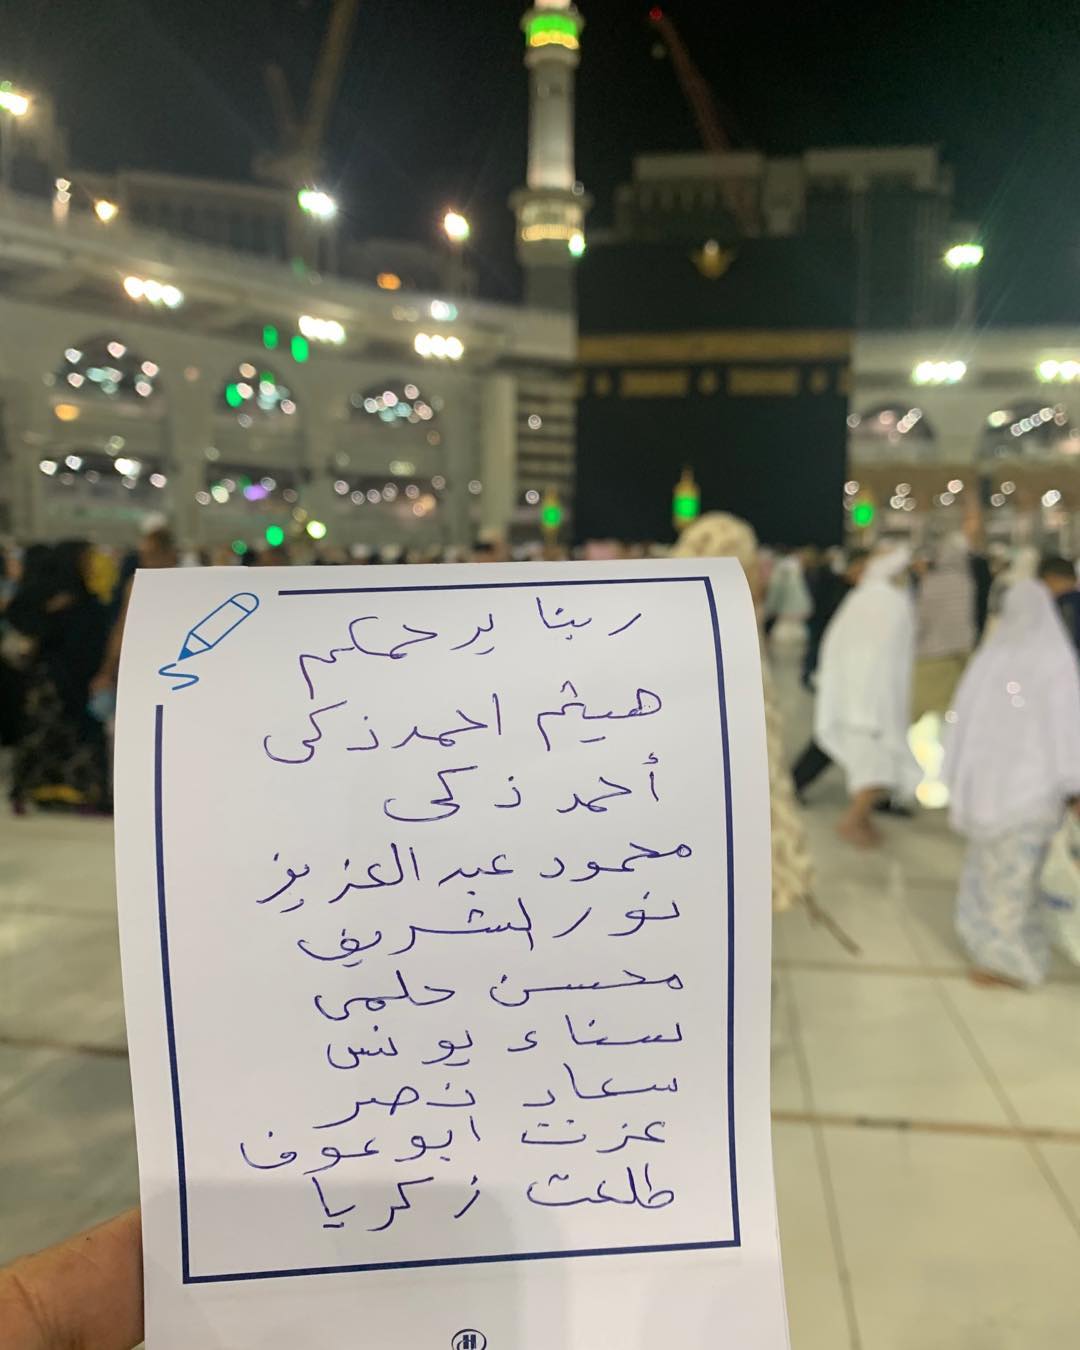 ربنا يرحمكم
هيثم احمد زكى
أحمد زكى
محمود عبد العزيز
نور الشريف
محسن حلمى
سناء يونس
سعاد نصر
عزت ابو عوف
طلعت زكريا
H